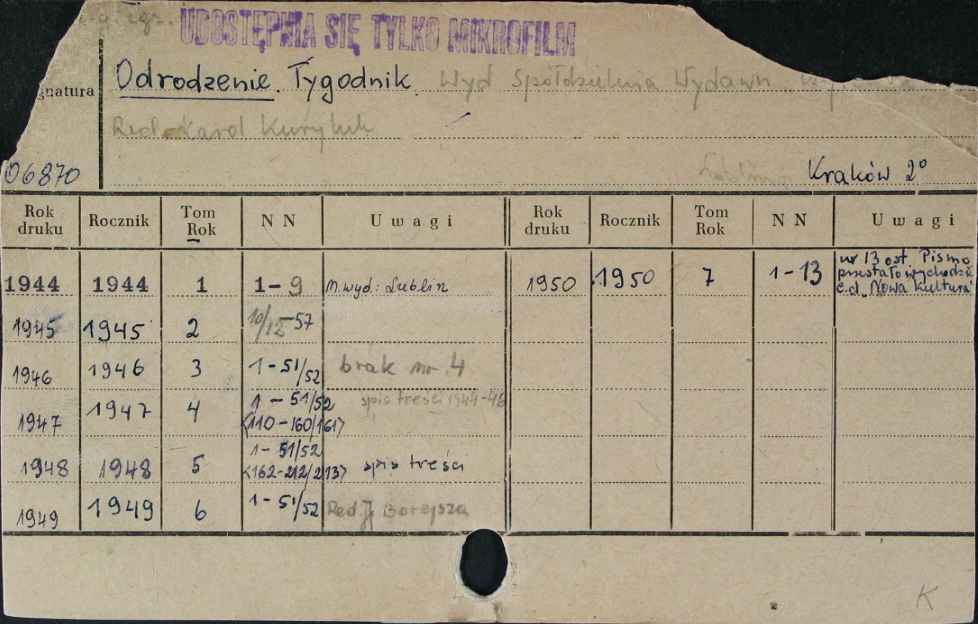 zgr.
UDOSTĘPNIA SIĘ TYLKO MIKROFILM
gnatura
Odrodzenie. Tygodnik. Wyd Spółdzielnia Wydawn
Red. Karol Kuryluk
06870 Kraków 2°
Rok druku Rocznik Tom Rok NN Uwagi Rok druku Rocznik Tom Rok NN Uwagi
1944 1944 1 1-9 M. wyd: Lublin 1950 1950 7 1-13 nr 13 ost. Pismo przestało wychodzić c.d. "Nowa Kultura"
1945 1945 2 10/12-57
1946 1946 3 1-51/52 brak nr. 4
1947 1947 4 1-51/52 <110-160/161> spis treści 1944-46
1948 1948 5 1-51/52 <162-212/213> spis treści
1949 1949 6 1-51/52 Red. J. Borejsza
K